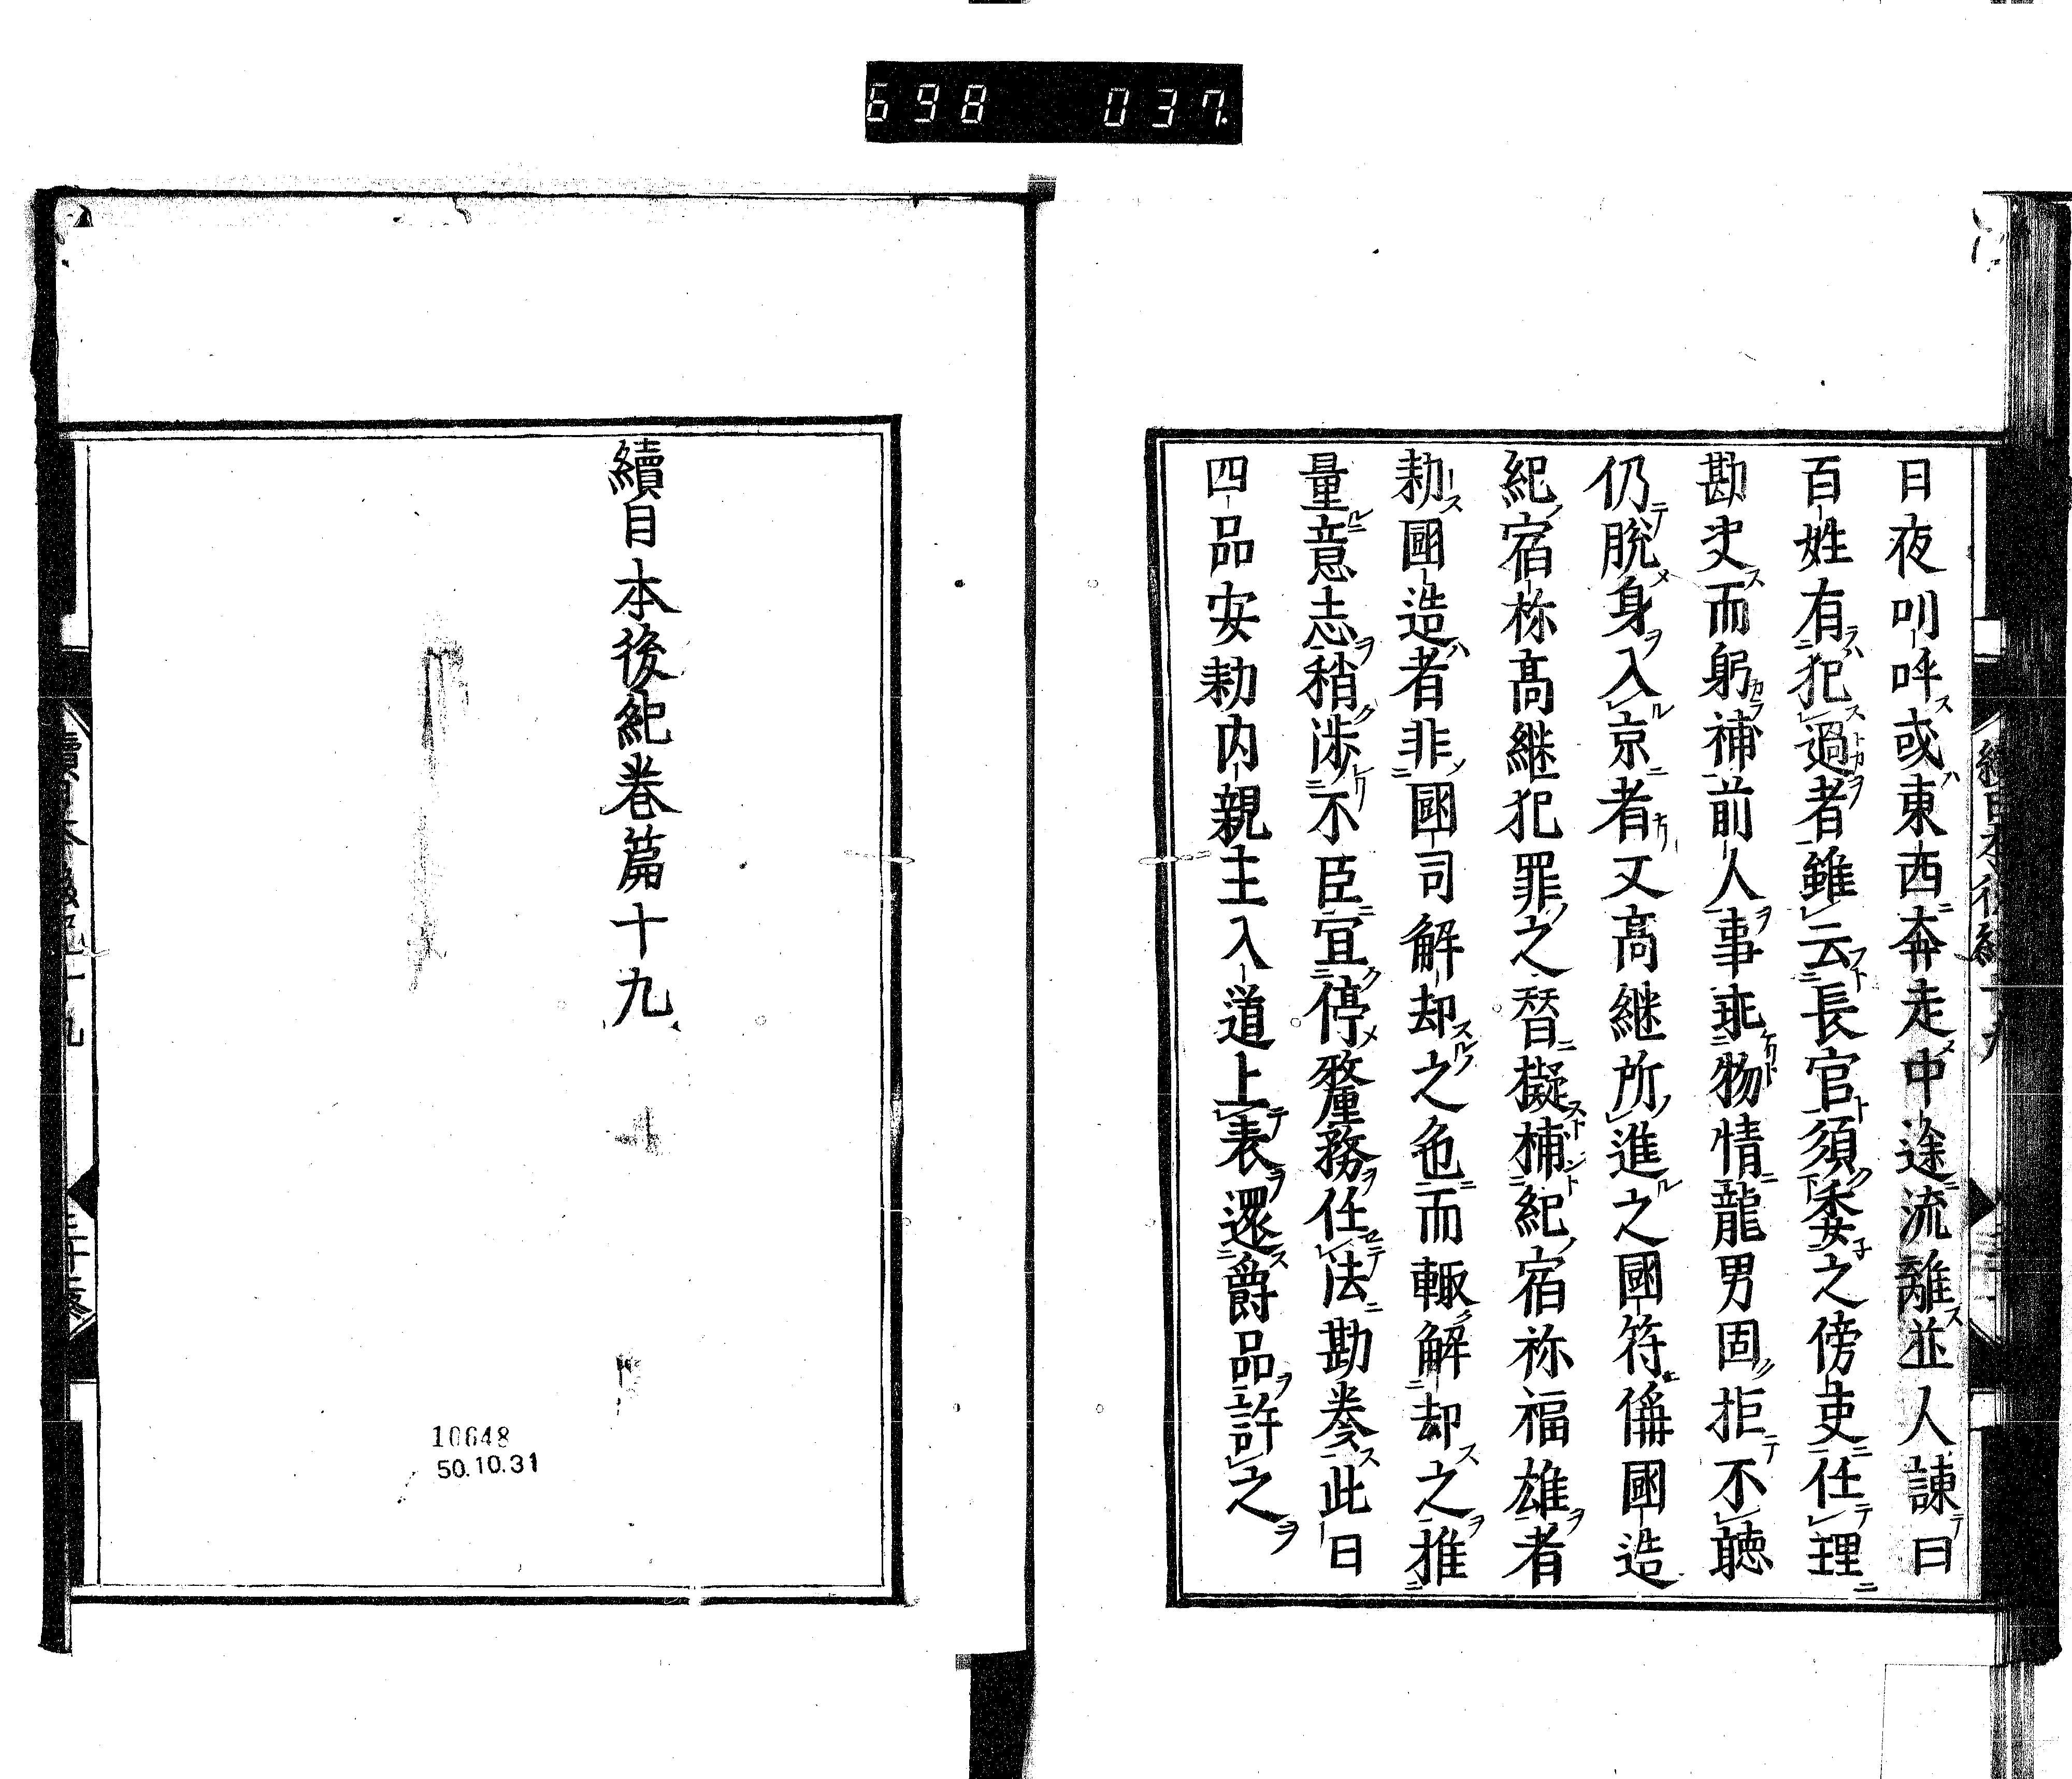 698 037.
日夜叫呼或東西奔走中途流離並人諌曰
百姓有犯過者雖云長官須委之傍吏任理
勘支而躬補前人事乖物情龍男固拒不聴
仍脱身入京者又高継所進之國符偁國造
紀宿祢高継犯罪之替擬補紀宿祢福雄者
勅國造者非國司解却之色而輙解却之推
量意志稍渉不臣宜停釐務任法勘奏此日
四品安勅内親王入道上表還爵品許之
續日本後紀卷篇十九
10648
50.10.31